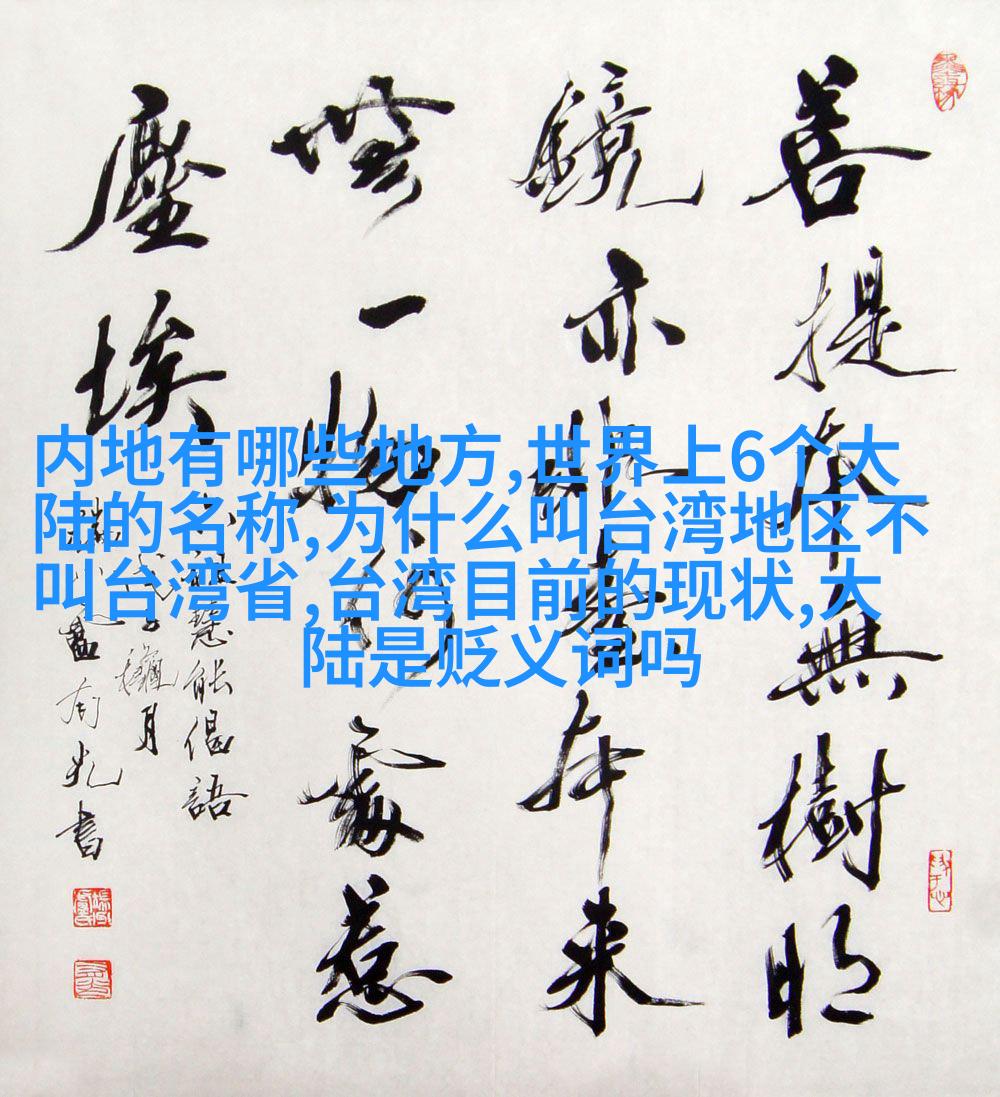 内地有哪些地方,世界上6个大
陆的名称,为什么叫台湾地区不
叫台湾省,台湾目前的现状,大
陆是贬义词吗
菩提本無樹明
鏡亦非臺本來
無一物何處惹
塵埃
六祖慧能偈語
月
書